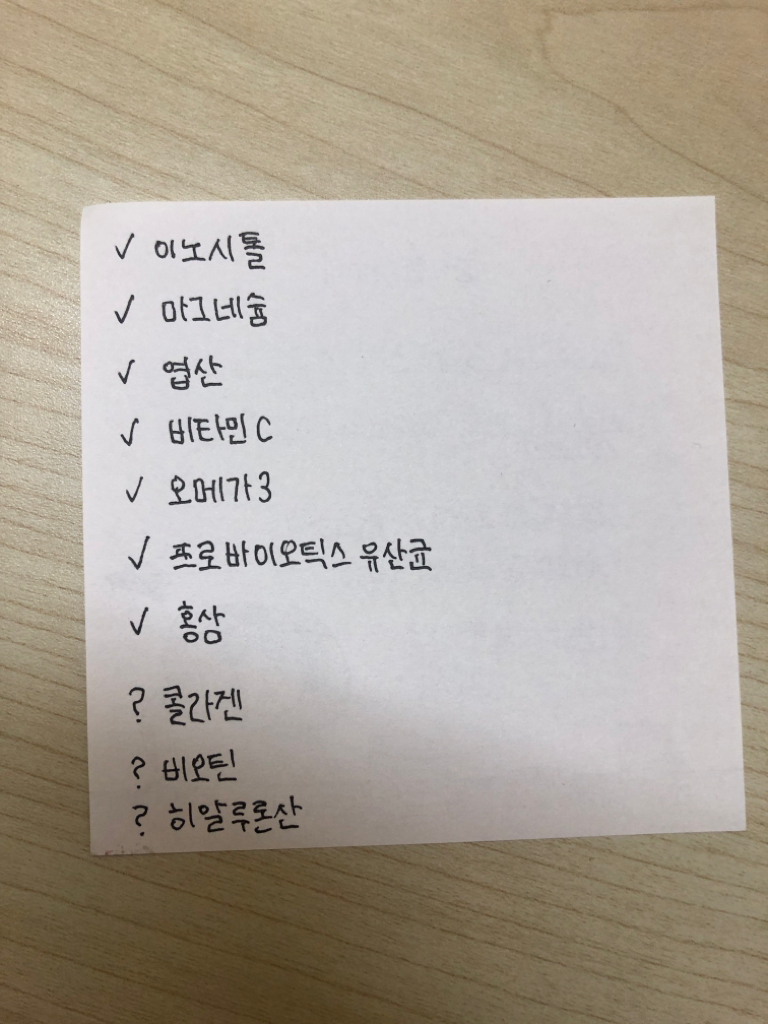 ✓ 이노시톨
✓ 마그네슘
✓ 엽산
✓ 비타민 C
✓ 오메가 3
✓ 프로바이오틱스 유산균
✓ 홍삼
? 콜라겐
? 비오틴
? 히알루론산